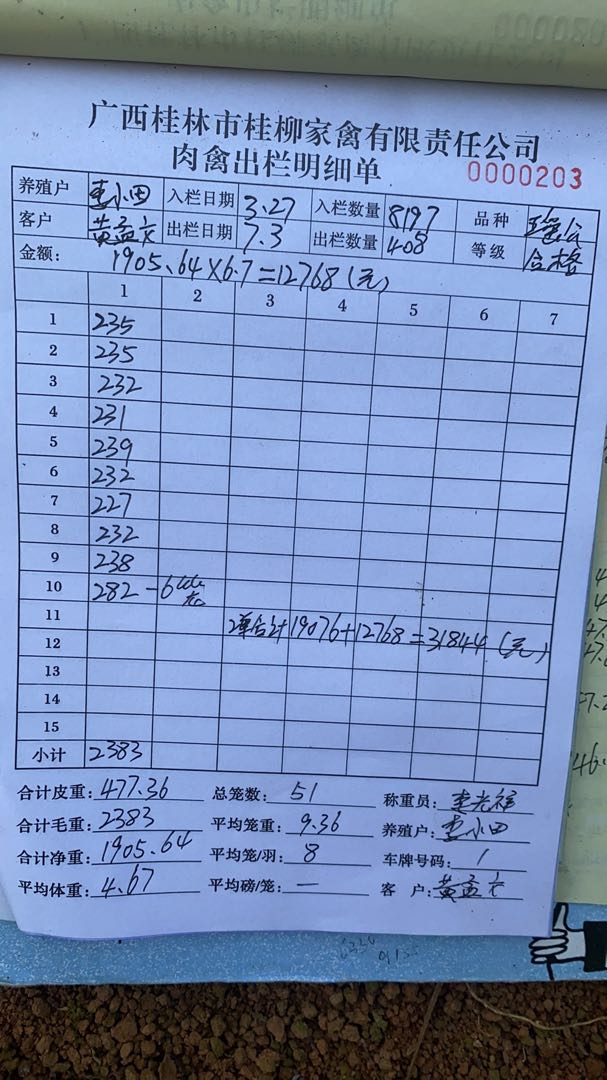 广西桂林市桂柳家禽有限责任公司
肉禽出栏明细单 0000203
养殖户 小田 入栏日期 3.27 入栏数量 8197 品种
客户 黄孟文 出栏日期 7.3 出栏数量 408 等级 合格
金额: 1905.64×6.7=12768(元)
1 2 3 4 5 6 7
1 235
2 235
3 232
4 231
5 239
6 232
7 227
8 232
9 238
10 282 -6
11 2单合计19076+12768=31844(元)
12
13
14
15
小计 2383
合计皮重: 477.36 总笼数: 51 称重员:
合计毛重: 2383 平均笼重: 9.36 养殖户: 小田
合计净重: 1905.64 平均笼/羽: 8 车牌号码: 1
平均体重: 4.67 平均磅/笼: — 客 户: 黄孟文